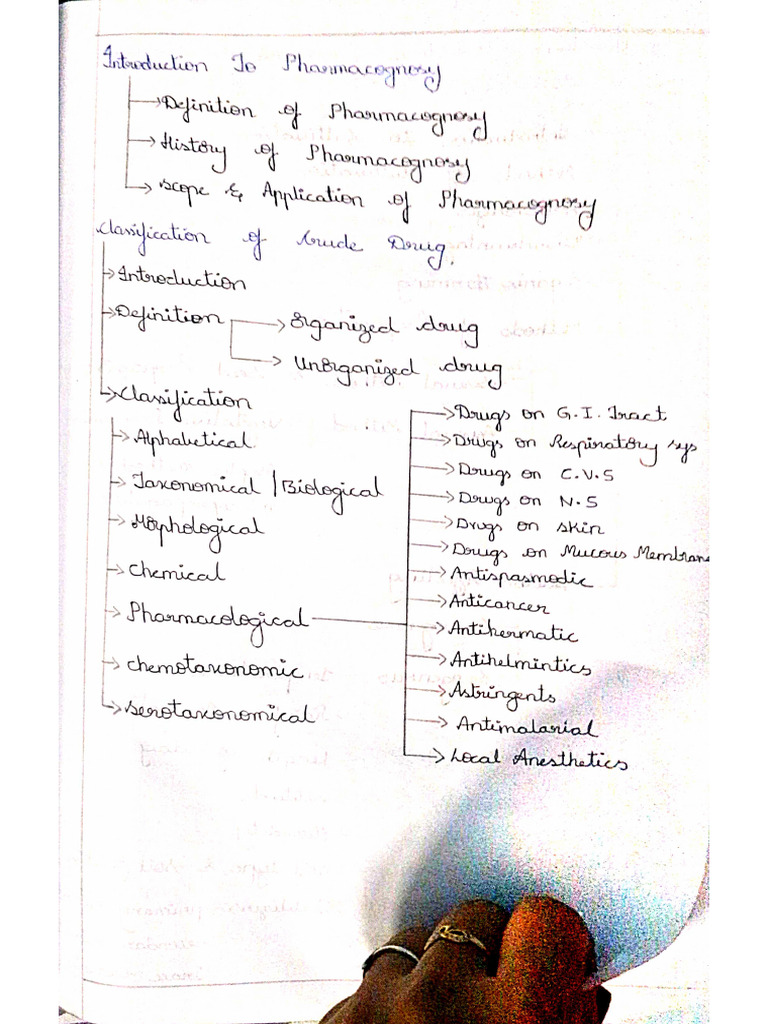 Introduction To Pharmacognosy
Definition of Pharmacognosy
History of Pharmacognosy
Scope & Application of Pharmacognosy
Classification of Crude Drug.
Introduction
Definition
Organized drug
Unorganized drug
Classification
Alphabetical
Taxonomical / Biological
Morphological
Chemical
Pharmacological
Chemotaxonomic
Serotaxonomical
Drugs on G.I. Tract
Drugs on Respiratory sys
Drugs on C.V.S
Drugs on N.S
Drugs on skin
Drugs on Mucous Membrane
Antispasmodic
Anticancer
Antihermatic
Antihelmintics
Astringents
Antimalarial
Local Anesthetics